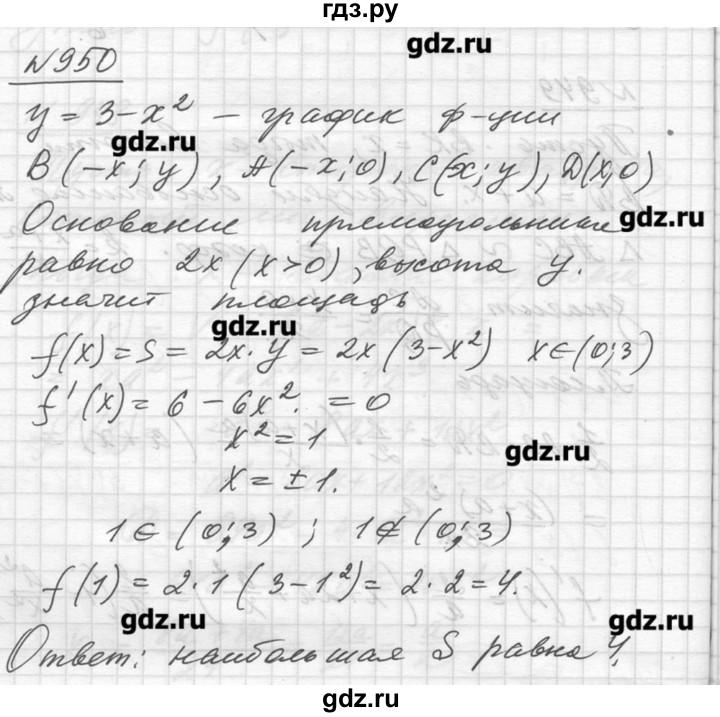 гдз.ру
gdz.ru
№950
y = 3-x² – график ф-ции
gdz.ru
B(-x; y), A(-x; 0), C(x; y), D(x,0)
Основание прямоугольника
gdz.ru
равно 2x (x>0), высота y.
значит площадь
gdz.ru
f(x) = S = 2x·y = 2x(3-x²) x∈(0;3)
f'(x) = 6 - 6x². = 0
x² = 1
gdz.ru
x = ±1.
1∈(0;3) ; 1∉(0;3)
f(1) = 2·1(3-1²) = 2·2 = 4.
gdz.ru
gdz.ru
Ответ: наибольшая S равна 4.
gdz.ru